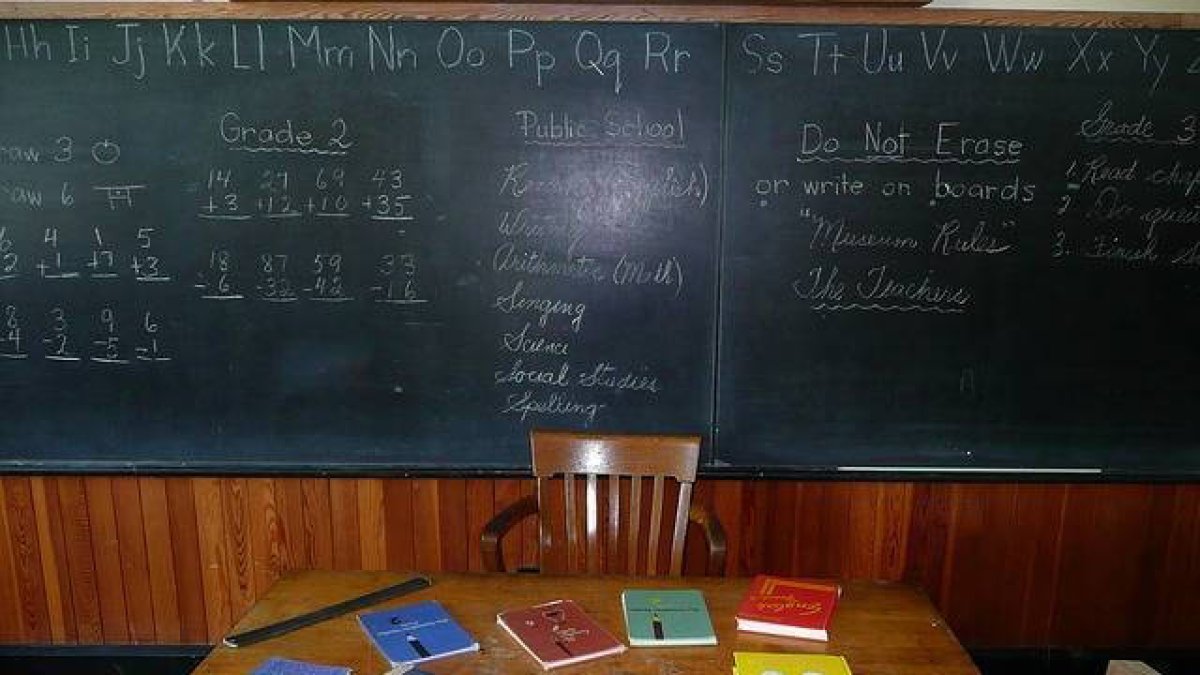 Hh Ii Jj Kk Ll Mm Nn Oo Pp Qq Rr Ss Tt Uu Vv Ww Xx Yy
raw 3
raw 6
4 1 5
2 +1 +7 +3
8 3 9 6
4 -2 -5 -1
Grade 2
14 27 69 43
+3 +12 +10 +35
18 87 59 33
-6 -32 -42 -16
Public School
Reading (English)
Writing
Arithmetic (Math)
Singing
Science
Social Studies
Spelling
Do Not Erase
or write on boards
"Museum Rules"
The Teachers
Grade 3
1. Read
2 Do
3. Finish
English